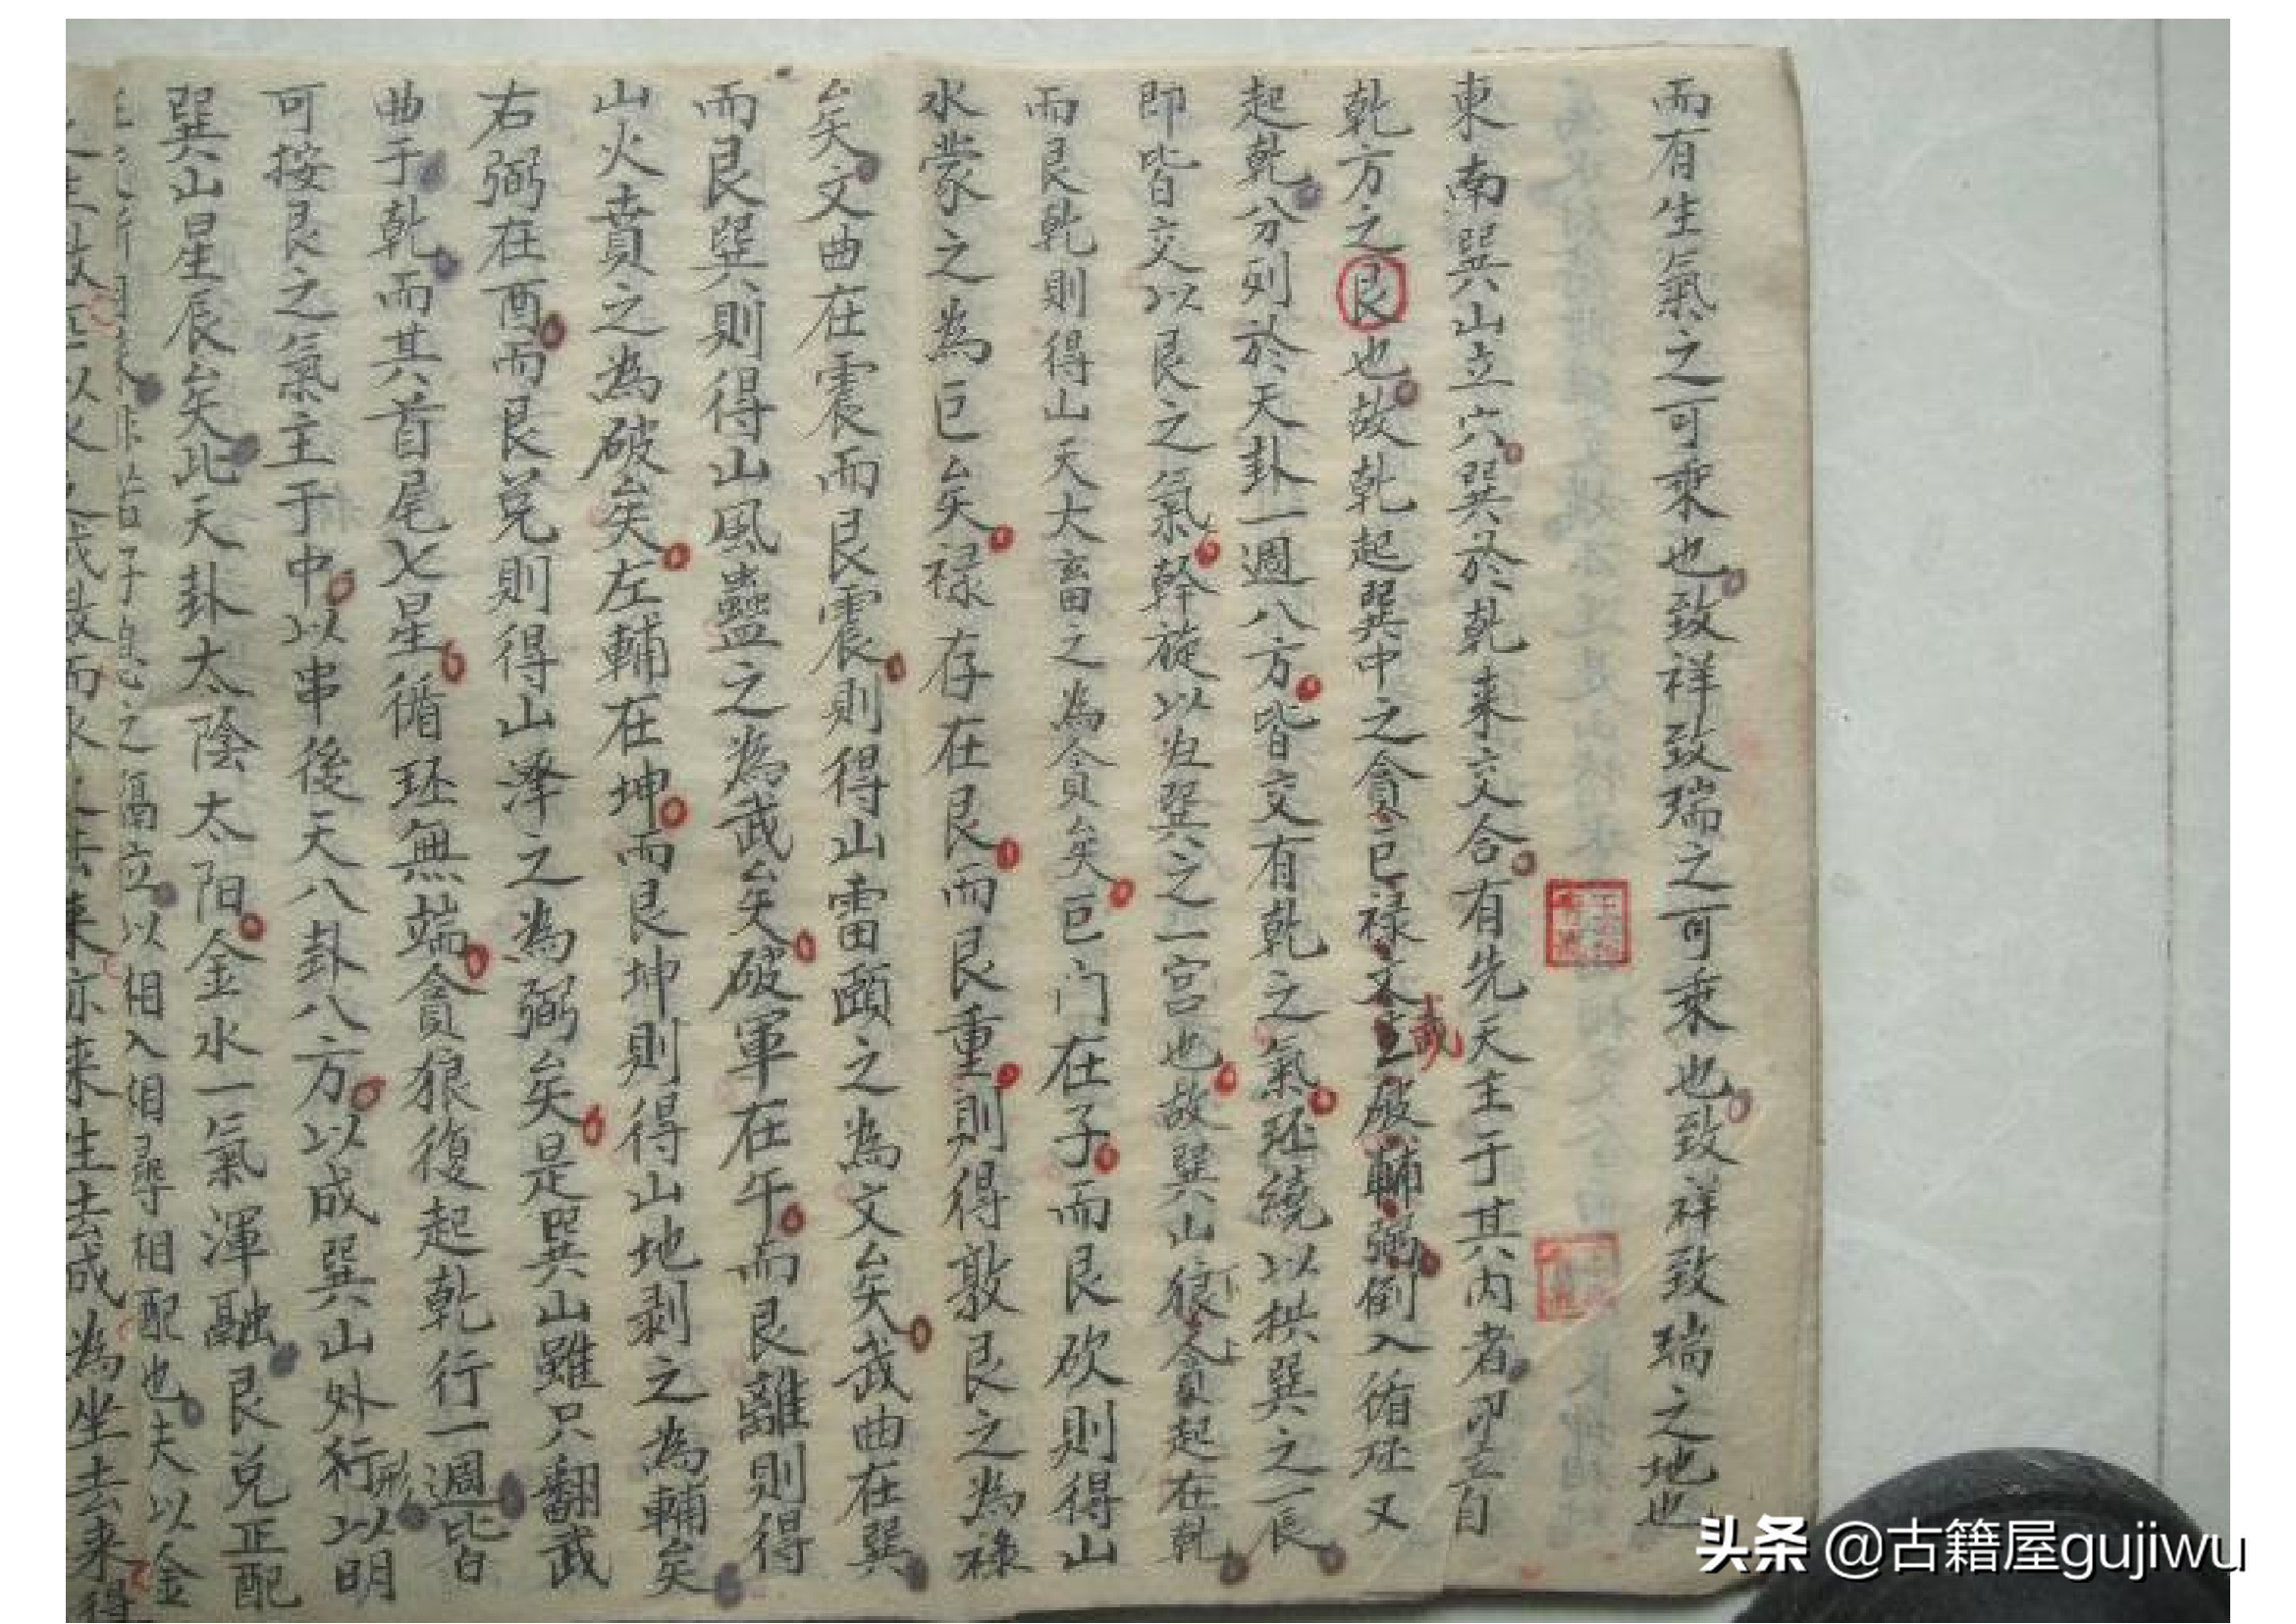 而有生氣之可乘也致祥致瑞之可乘也致祥致瑞之地也
東南巽山立穴巽於乾來交合有先天主于其内者即自
乾方之艮也故乾起巽中之貪巨禄文武破輔弼倒入循环又
起乾分列於天卦一週八方皆交有乾之氣环繞以拱巽之一辰
即皆交以艮之氣斡旋以归巽之一宫也故巽山狼貪起在乾
而艮乾則得山天大畜之為貪矣巨门在子而艮砍則得山
水蒙之為巨矣禄存在艮而艮重則得敦艮之為禄
矣文曲在震而艮震則得山雷頤之為文矣武曲在巽
而艮巽則得山風蠱之為武矣破軍在午而艮離則得
山火賁之為破矣左輔在坤而艮坤則得山地剥之為輔矣
右弼在酉而艮兑則得山澤之為弼矣是巽山雖只翻武
曲于乾而其首尾七星循环無端貪狼復起乾行一週皆
可按艮之氣主于中以串後天八卦八方以成巽山外行形以明
巽山星辰矣此天卦太陰太阳金水一氣渾融艮兑正配
之隔立以相入相尋相配也夫以金
來亦来生去成為坐去来得
头条 @古籍屋gujiwu